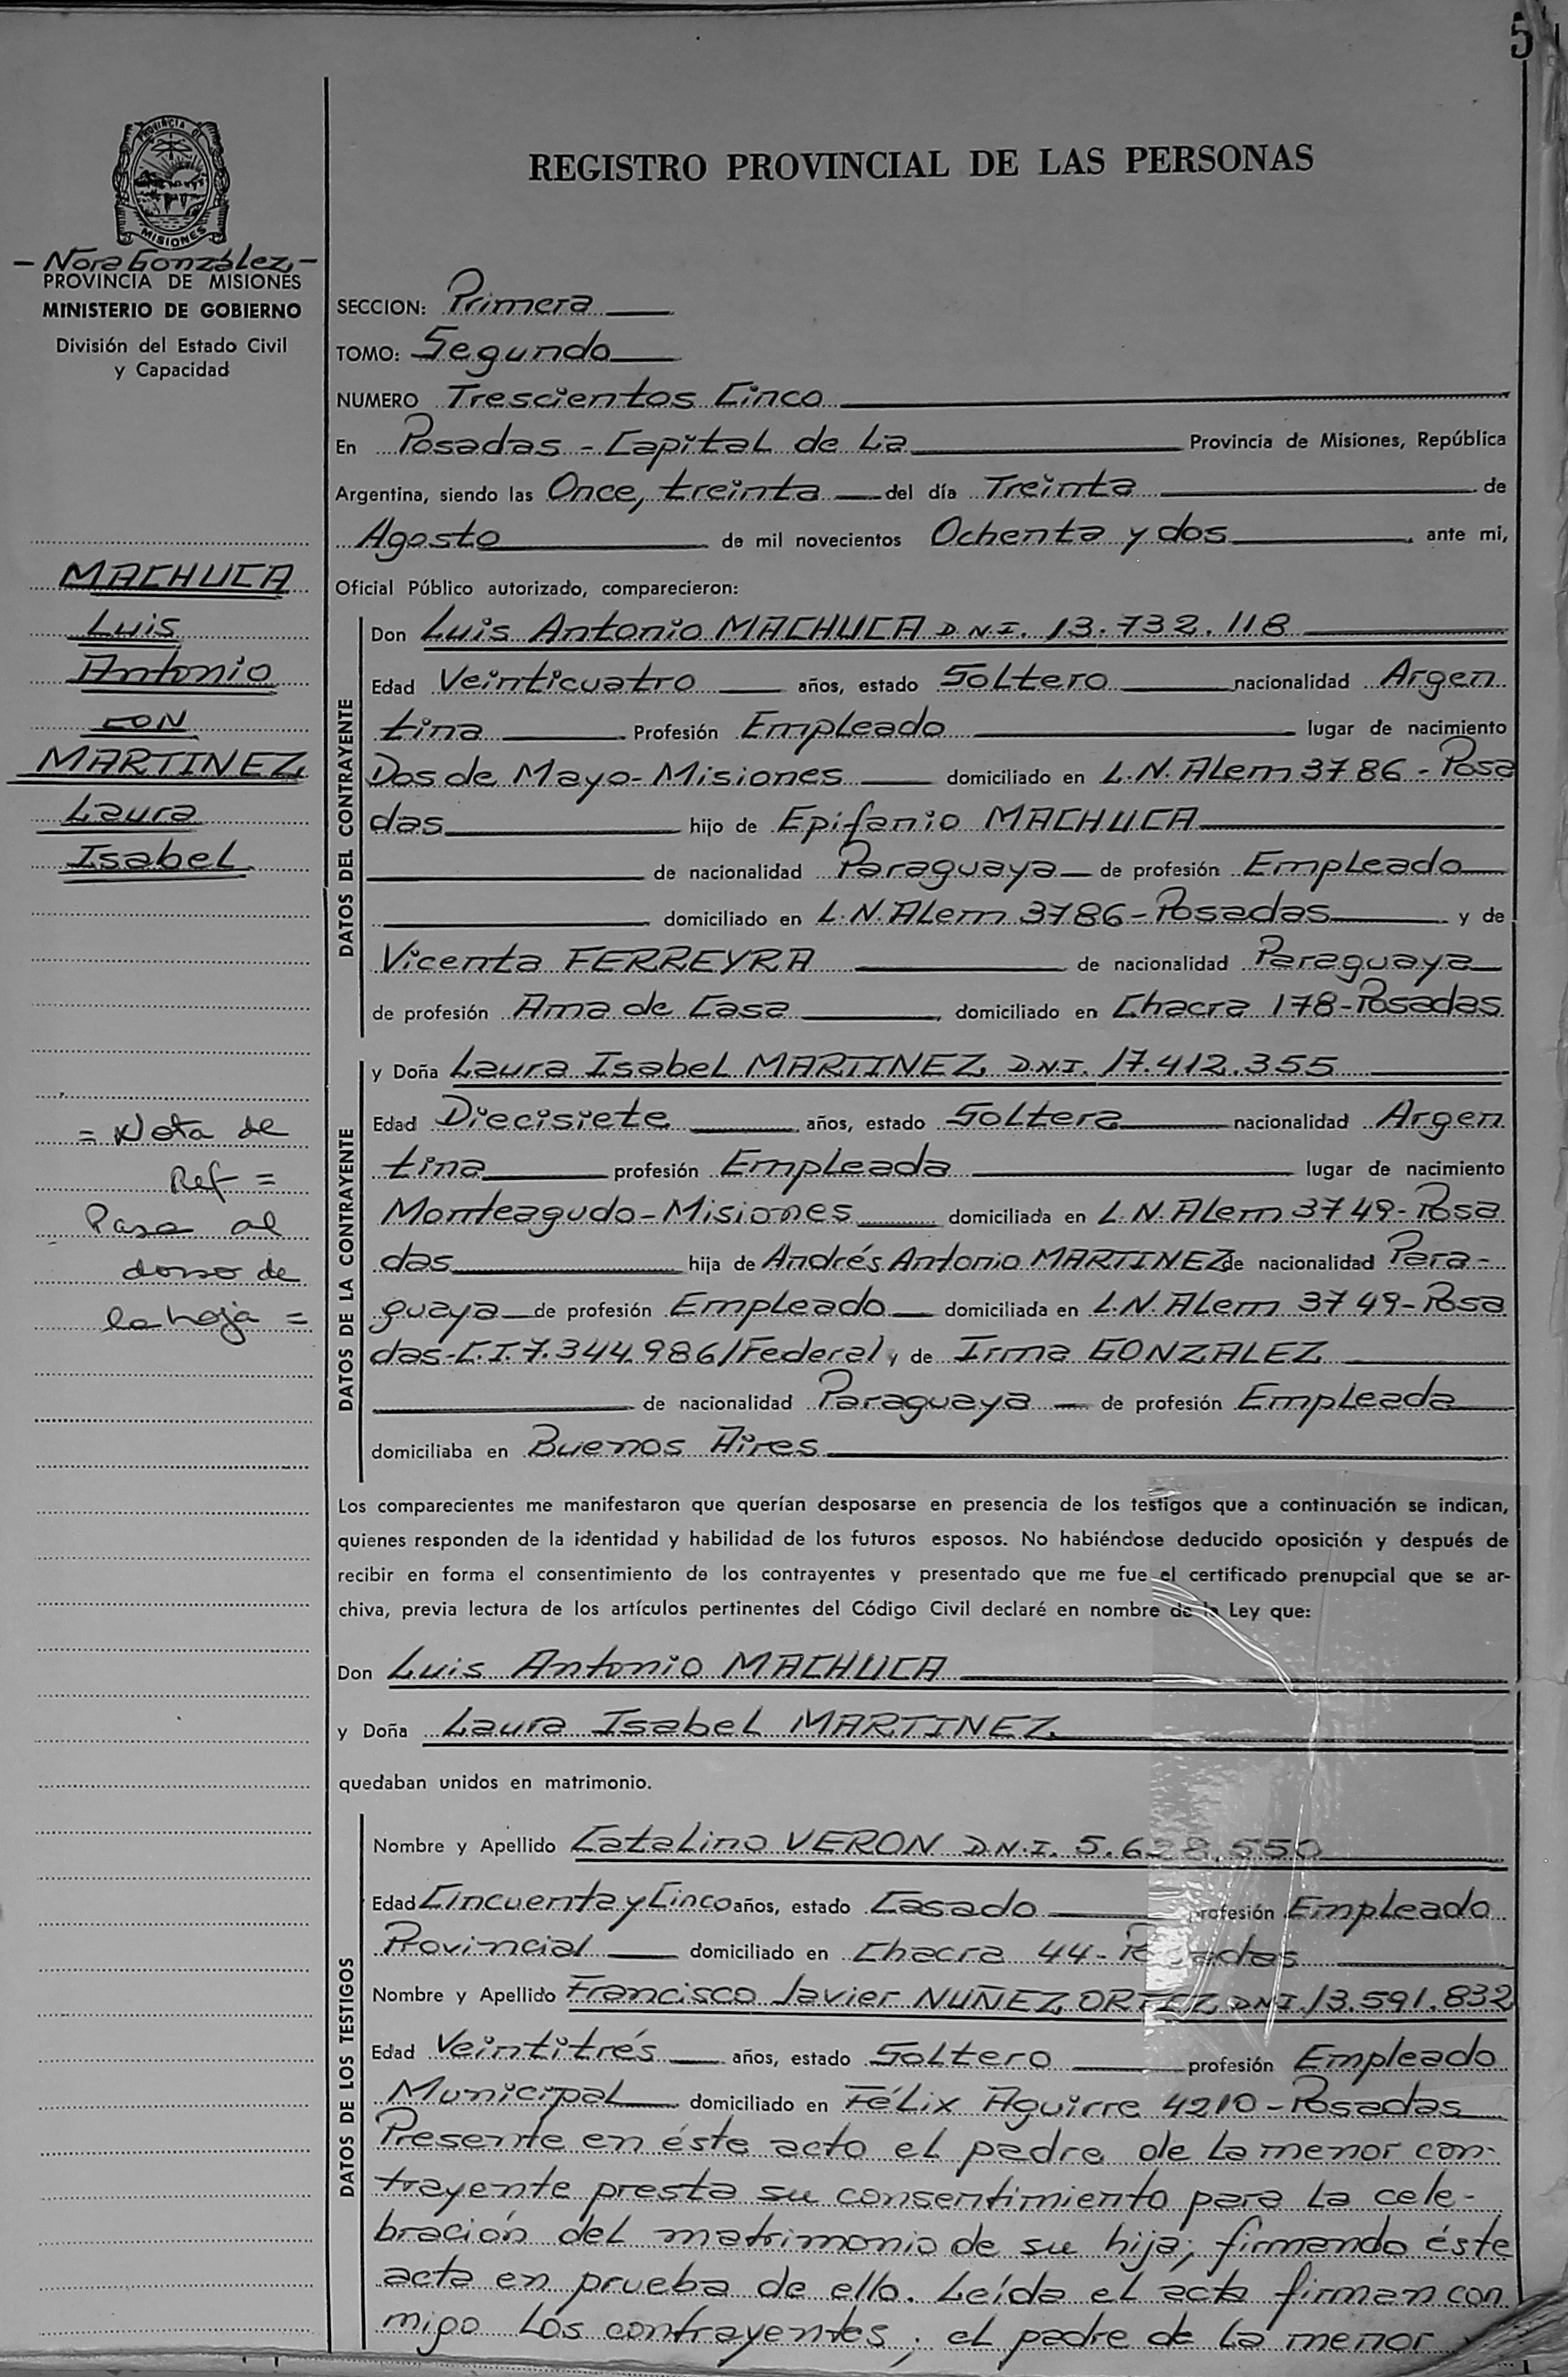 5
REGISTRO PROVINCIAL DE LAS PERSONAS
PROVINCIA DE
MISIONES
- Nora González -
PROVINCIA DE MISIONES
MINISTERIO DE GOBIERNO
División del Estado Civil
y Capacidad
MACHUCA
Luis
Antonio
CON
MARTINEZ
Laura
Isabel
= Nota de
Ref =
Pasa al
dorso de
la hoja =
SECCION: Primera
TOMO: Segundo
NUMERO Trescientos Cinco
En Posadas - Capital de La Provincia de Misiones, República
Argentina, siendo las Once, treinta del día Treinta de
Agosto de mil novecientos Ochenta y dos, ante mi,
Oficial Público autorizado, comparecieron:
DATOS DEL CONTRAYENTE
Don Luis Antonio MACHUCA D.N.I. 13.732.118
Edad Veinticuatro años, estado Soltero nacionalidad Argen
tina Profesión Empleado lugar de nacimiento
Dos de Mayo-Misiones domiciliado en L.N.Alem 3786 - Posa
das hijo de Epifanio MACHUCA
de nacionalidad Paraguaya de profesión Empleado
domiciliado en L.N.Alem 3786-Posadas y de
Vicenta FERREYRA de nacionalidad Paraguaya
de profesión Ama de Casa, domiciliado en Chacra 178-Posadas
DATOS DE LA CONTRAYENTE
y Doña Laura Isabel MARTINEZ D.N.I. 17.412.355
Edad Diecisiete, años, estado Soltera nacionalidad Argen
tina profesión Empleada lugar de nacimiento
Monteagudo-Misiones domiciliada en L.N.Alem 3749-Posa
das hija de Andrés Antonio MARTINEZ de nacionalidad Para-
guaya de profesión Empleado domiciliada en L.N.Alem 3749-Posa
das-C.I.7.344.986/Federal y de Irma GONZALEZ
de nacionalidad Paraguaya de profesión Empleada
domiciliaba en Buenos Aires
Los comparecientes me manifestaron que querían desposarse en presencia de los testigos que a continuación se indican,
quienes responden de la identidad y habilidad de los futuros esposos. No habiéndose deducido oposición y después de
recibir en forma el consentimiento de los contrayentes y presentado que me fue el certificado prenupcial que se ar-
chiva, previa lectura de los artículos pertinentes del Código Civil declaré en nombre de la Ley que:
Don Luis Antonio MACHUCA
y Doña Laura Isabel MARTINEZ
quedaban unidos en matrimonio.
DATOS DE LOS TESTIGOS
Nombre y Apellido Catalino VERON D.N.I. 5.628.550
Edad Cincuenta y Cinco años, estado Casado profesión Empleado
Provincial domiciliado en Chacra 44-Posadas
Nombre y Apellido Francisco Javier NUÑEZ ORTIZ DNI.13.591.832
Edad Veintitrés años, estado Soltero profesión Empleado
Municipal domiciliado en Félix Aguirre 4210-Posadas
Presente en éste acto el padre de La menor con-
trayente presta su consentimiento para La cele-
bración del matrimonio de su hija; firmando éste
acta en prueba de ello. Leída el acta firman con
migo Los contrayentes; el padre de La menor